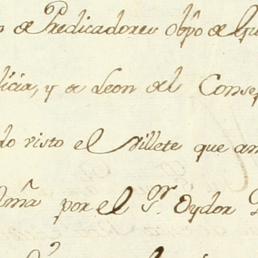 de Predicadores Obpo de
licia, y de Leon del Conse
do visto el Villete que am
por el Sr. Oydor